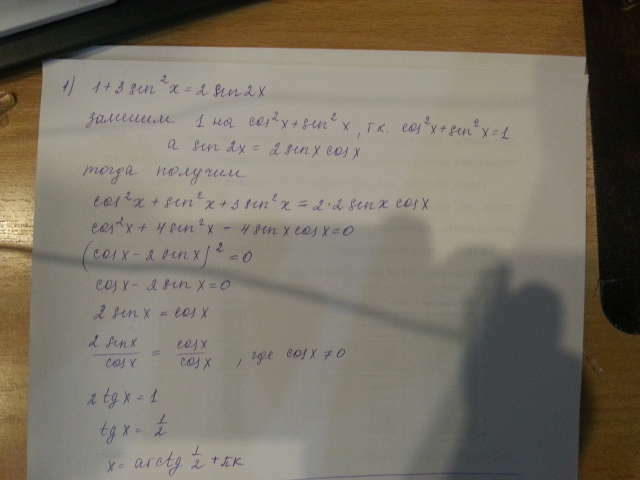 1) 1+3sin²x=2sin2x
заменим 1 на cos²x+sin²x, т.к. cos²x+sin²x=1
а sin2x=2sinxcosx
тогда получим
cos²x+sin²x+3sin²x=2·2sinx cosx
cos²x+4sin²x-4sinxcosx=0
(cosx-2sinx)²=0
cosx-2sinx=0
2sinx=cosx
2sinx/cosx = cosx/cosx, где cosx≠0
2tgx=1
tgx=1/2
x=arctg 1/2+πk